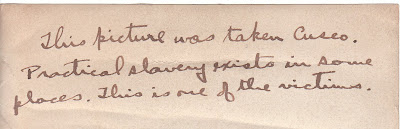 This picture was taken Cusco.
Practical slavery exists in some
places. This is one of the victims.